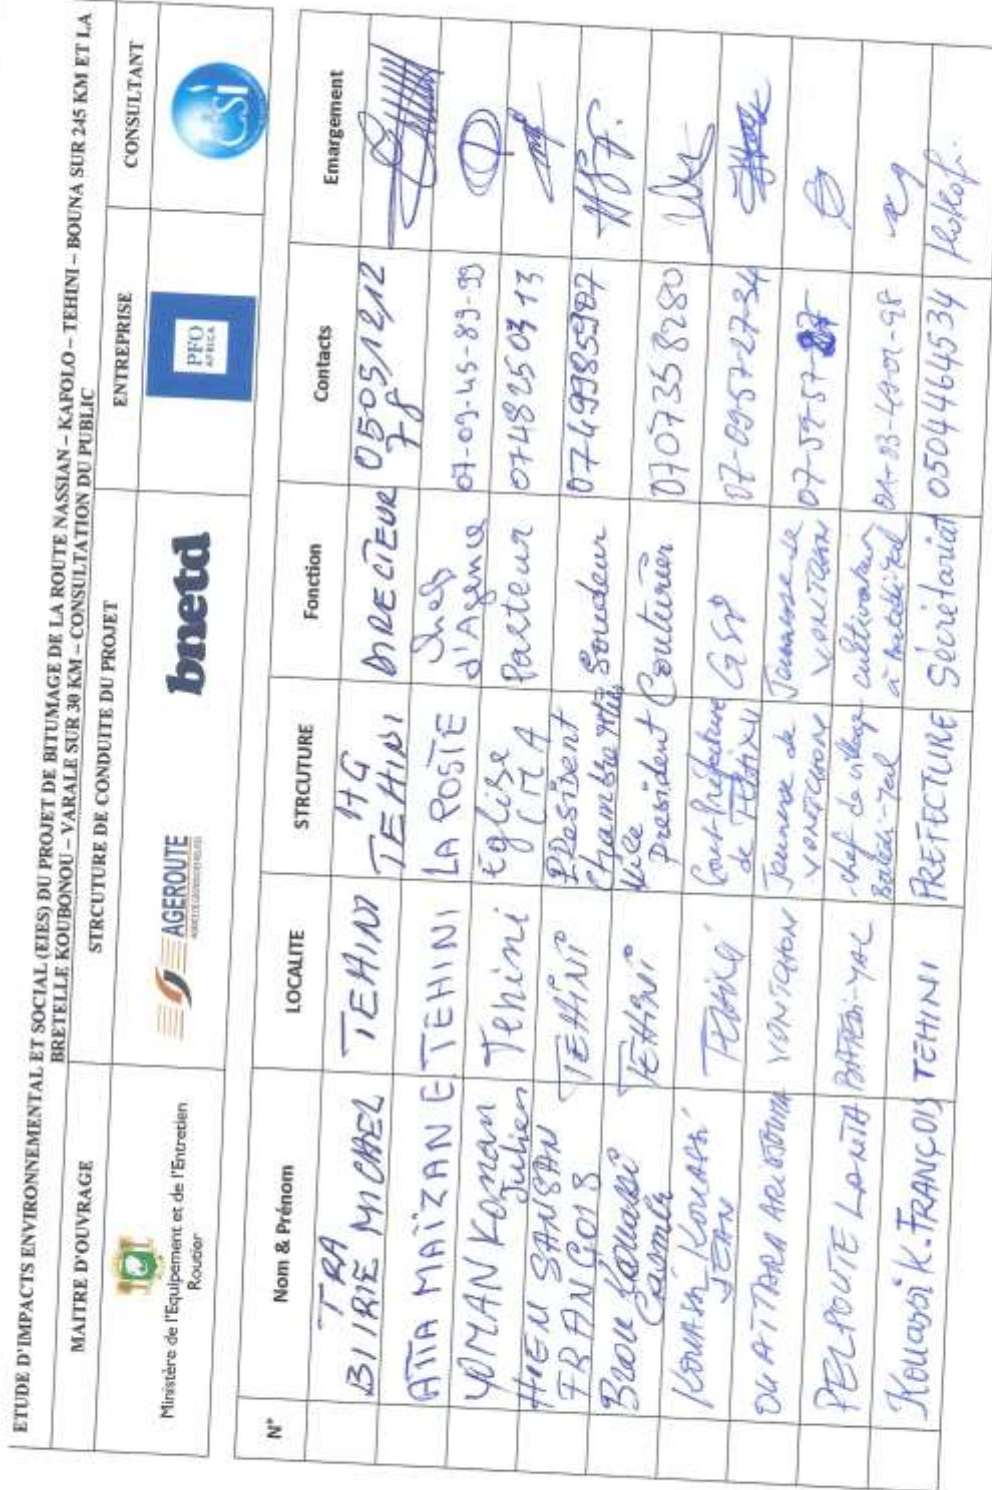 ETUDE D'IMPACTS ENVIRONNEMENTAL ET SOCIAL (EIES) DU PROJET DE BITUMAGE DE LA ROUTE NASSIAN – KAFOLO – TEHINI – BOUNA SUR 245 KM ET LA
BRETELLE KOUBONOU – VARALE SUR 30 KM – CONSULTATION DU PUBLIC
MAITRE D'OUVRAGE STRCUTURE DE CONDUITE DU PROJET ENTREPRISE CONSULTANT
Ministère de l'Equipement et de l'Entretien
Routier
AGEROUTE
bnetd
PFO
AFRICA
N° Nom & Prénom LOCALITE STRCUTURE Fonction Contacts Emargement
TRA
BI IRIE MICAEL TEHINI
TEHINI DIRECTEUR 05051212
78
ATTA MAÏZAN E. TEHINI LA POSTE Chef
d'Agence 07-09-45-89-99
YOMAN Konan
Julien Tehini Eglise
CMA Pasteur 0748250913
HIEN SANSAN
FRANÇOIS TEHINI President
Chambre Soudeur 0749985987
Brou Kouassi
TEHINI Vice
President Couturier 0707358280
Kouassi Kouassi
JEAN Tehini Sous-Préfecture
de TEHINI 07-09-57-27-34
OUATTARA Jeunesse de 07-59-57-
PELPOUTE chef de village cultivateur
Kouassi K. FRANÇOIS TEHINI PREFECTURE Sécrétariat 0504464534